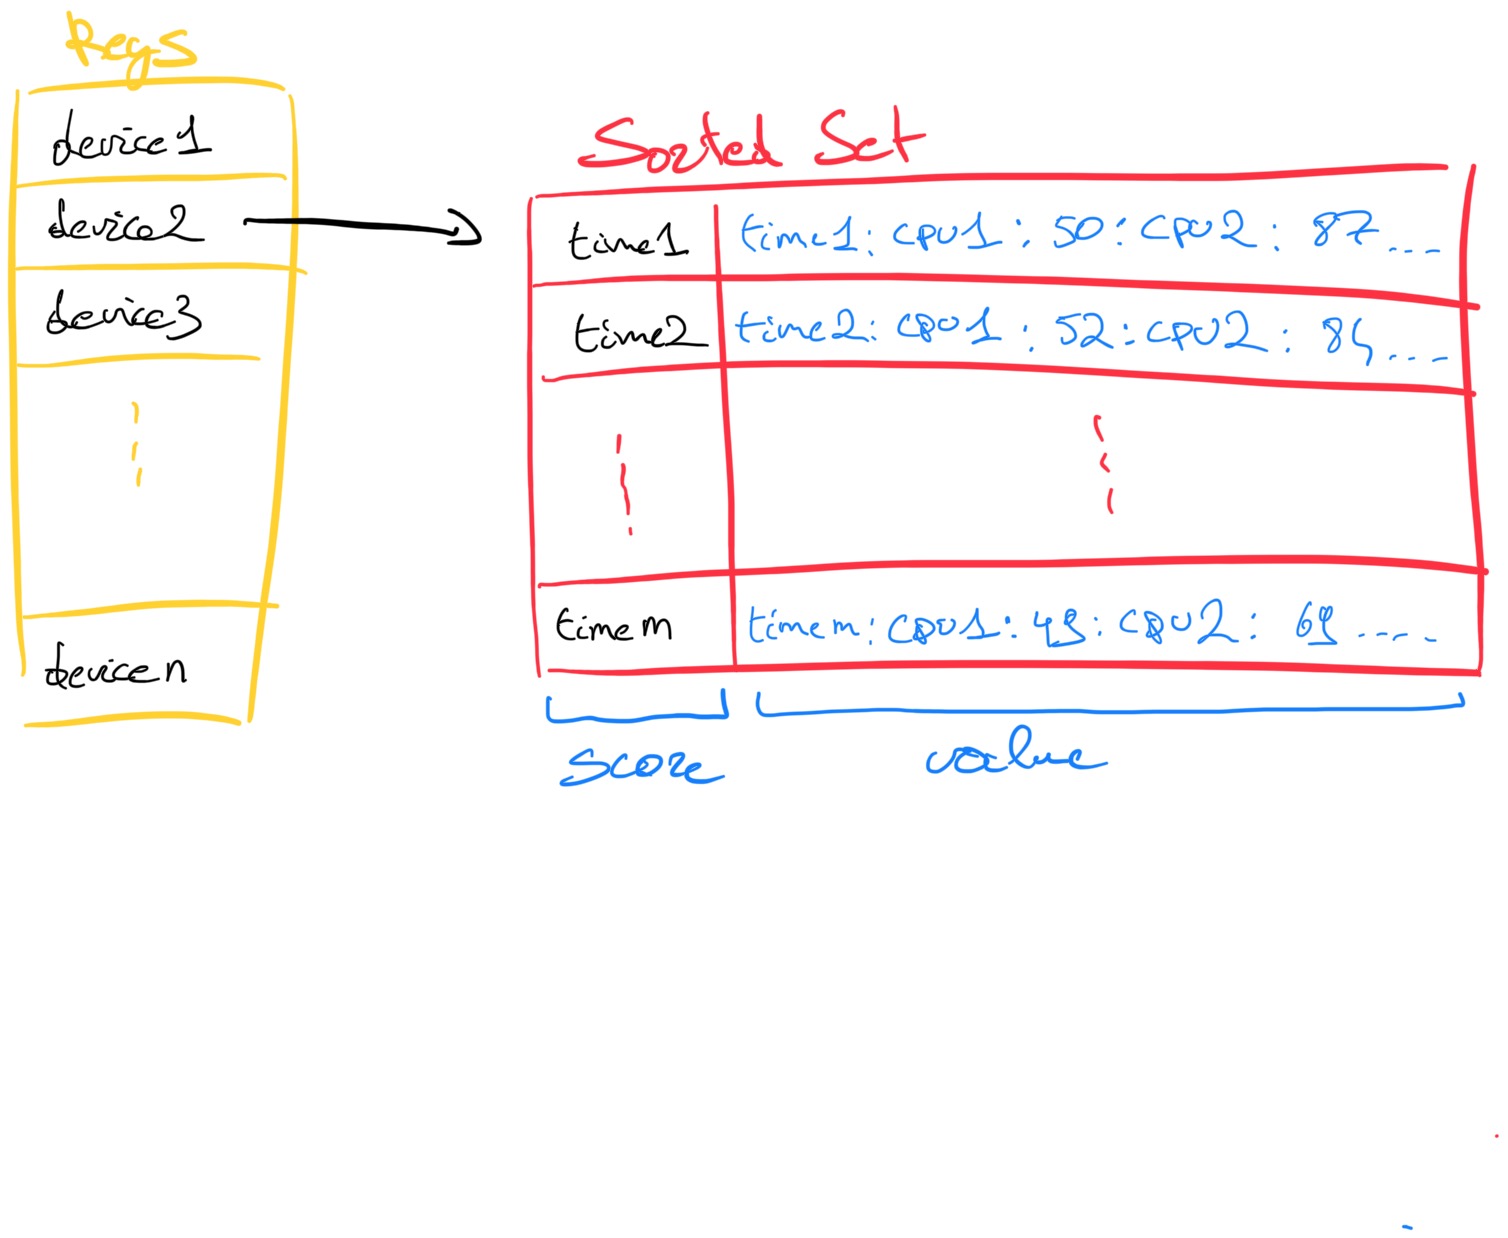 Keys
device1
device2
device3
device n
Sorted Set
time1 time1: CPU1: 50: CPU2: 87...
time2 time2: CPU1: 52: CPU2: 84...
time m time m: CPU1: 49: CPU2: 69....
score value